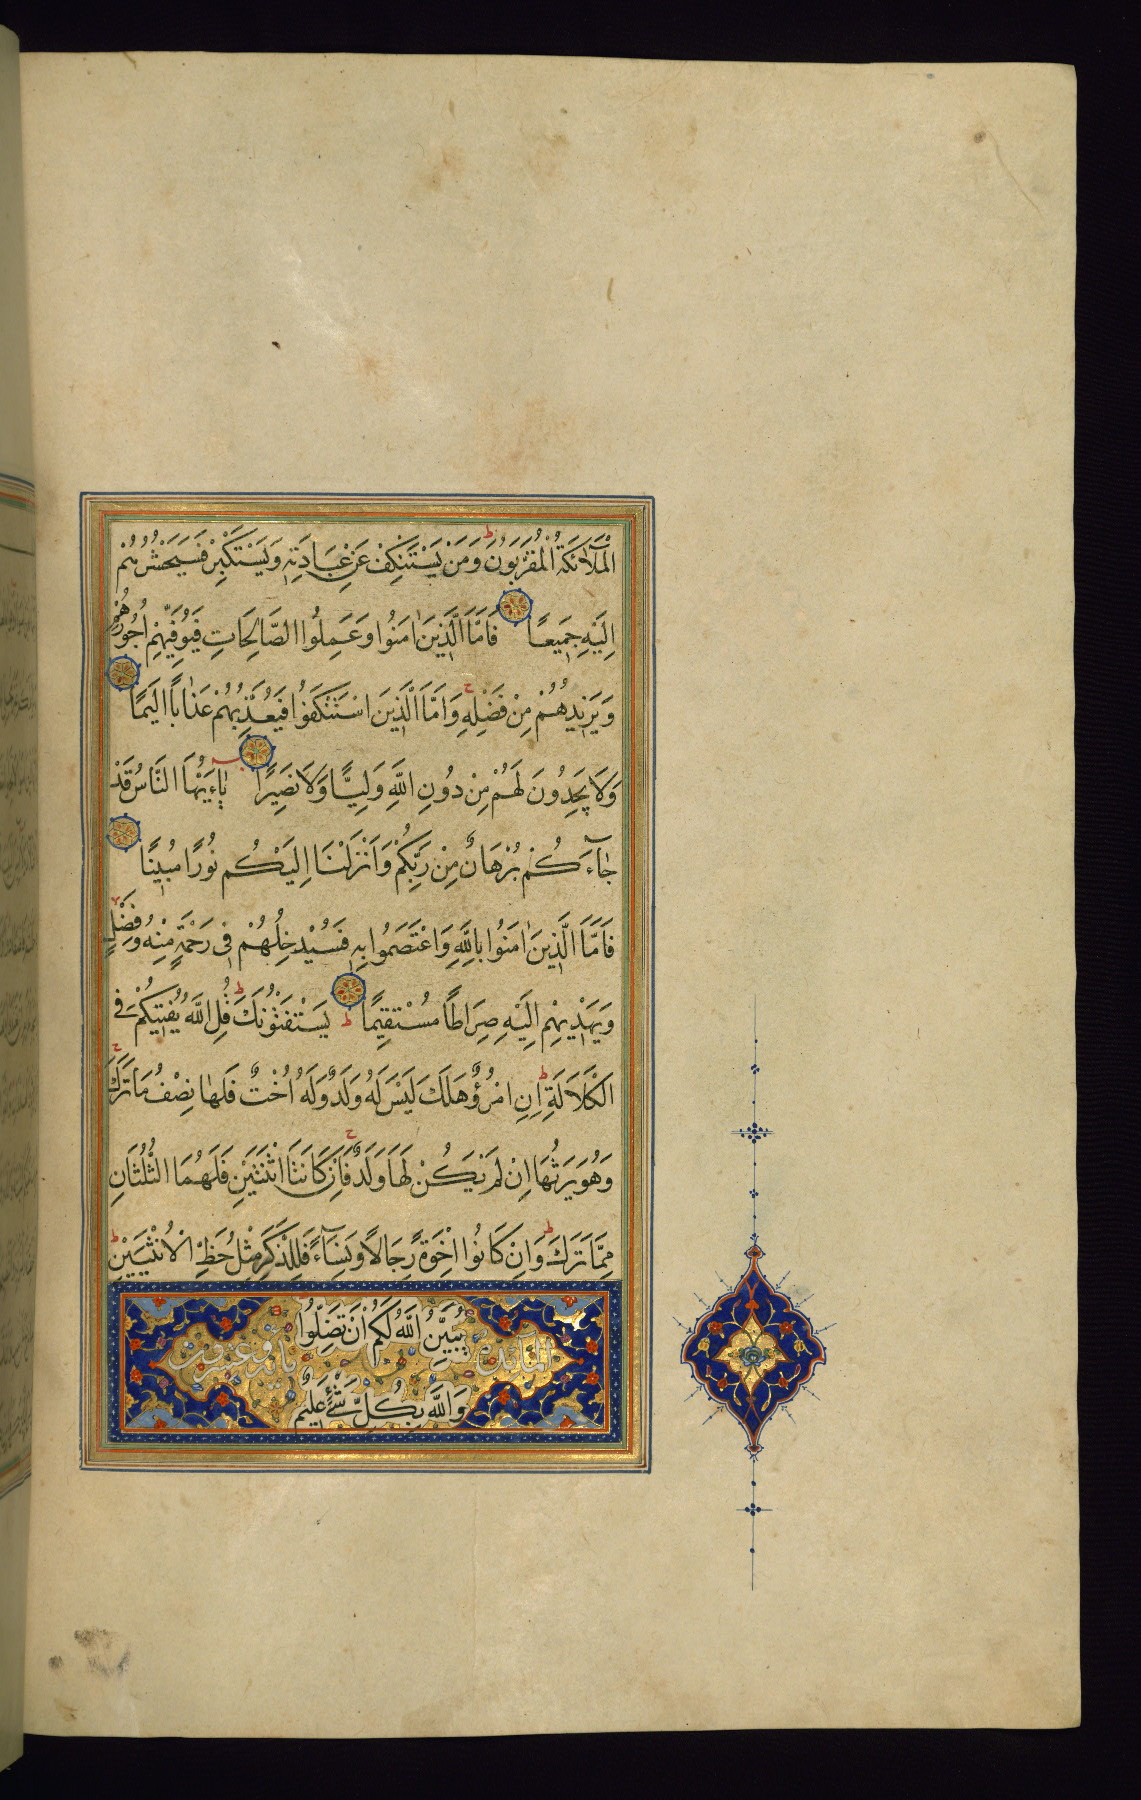 الْمَلَآئِكَةُ الْمُقَرَّبُونَ ط وَمَنْ يَسْتَنْكِفْ عَنْ عِبَادَتِهٖ وَيَسْتَكْبِرْ فَسَيَحْشُرُهُمْ
اِلَيْهِ جَمِيعًا فَاَمَّا الَّذِينَ اٰمَنُوا وَعَمِلُوا الصَّالِحَاتِ فَيُوَفِّيهِمْ اُجُورَهُمْ
وَيَزِيدُهُمْ مِنْ فَضْلِهٖ ح وَاَمَّا الَّذِينَ اسْتَنْكَفُوا فَيُعَذِّبُهُمْ عَذَابًا اَلِيمًا
وَلَا يَجِدُونَ لَهُمْ مِنْ دُونِ اللَّهِ وَلِيًّا وَلَا نَصِيرًا يٰٓاَيُّهَا النَّاسُ قَدْ
جَآءَكُمْ بُرْهَانٌ مِنْ رَبِّكُمْ وَاَنْزَلْنَا اِلَيْكُمْ نُورًا مُبِينًا
فَاَمَّا الَّذِينَ اٰمَنُوا بِاللَّهِ وَاعْتَصَمُوا بِهٖ فَسَيُدْخِلُهُمْ فِى رَحْمَةٍ مِنْهُ وَفَضْلٍ
وَيَهْدِيهِمْ اِلَيْهِ صِرَاطًا مُسْتَقِيمًا ط يَسْتَفْتُونَكَ ط قُلِ اللَّهُ يُفْتِيكُمْ فِى
الْكَلَالَةِ ط اِنِ امْرُؤٌ هَلَكَ لَيْسَ لَهُ وَلَدٌ وَلَهُ اُخْتٌ فَلَهَا نِصْفُ مَا تَرَكَ ح
وَهُوَ يَرِثُهَا اِنْ لَمْ يَكُنْ لَهَا وَلَدٌ ح فَاِنْ كَانَتَا اثْنَتَيْنِ فَلَهُمَا الثُّلُثَانِ
مِمَّا تَرَكَ ط وَاِنْ كَانُوا اِخْوَةً رِجَالًا وَنِسَآءً فَلِلذَّكَرِ مِثْلُ حَظِّ الْاُنْثَيَيْنِ ط
يُبَيِّنُ اللَّهُ لَكُمْ اَنْ تَضِلُّوا
المآئدة
وَاللَّهُ بِكُلِّ شَىْءٍ عَلِيمٌ